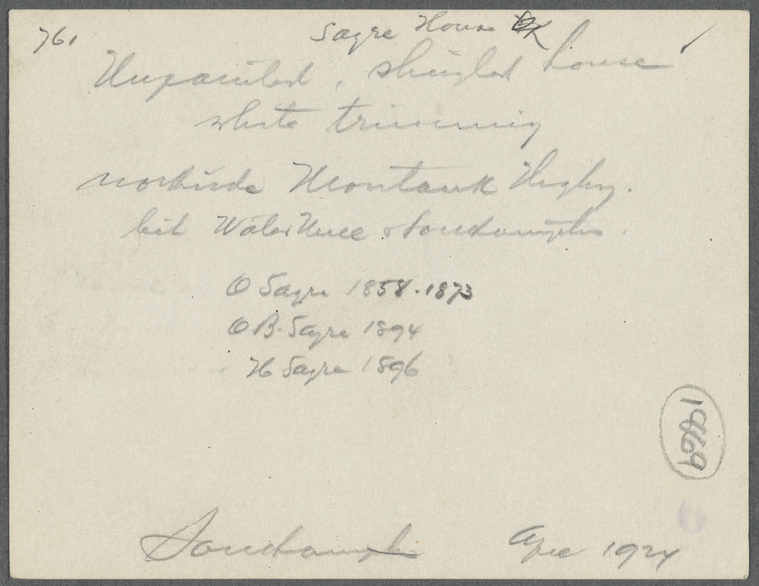 761 Sayre House OK ✓
Unpainted, shingled house
white trimming
northside Montauk Highy.
bet Water Mill & Southampton.
O Sayre 1858-1873
O B. Sayre 1894
H Sayre 1896
19869
Southampton Apr 1924